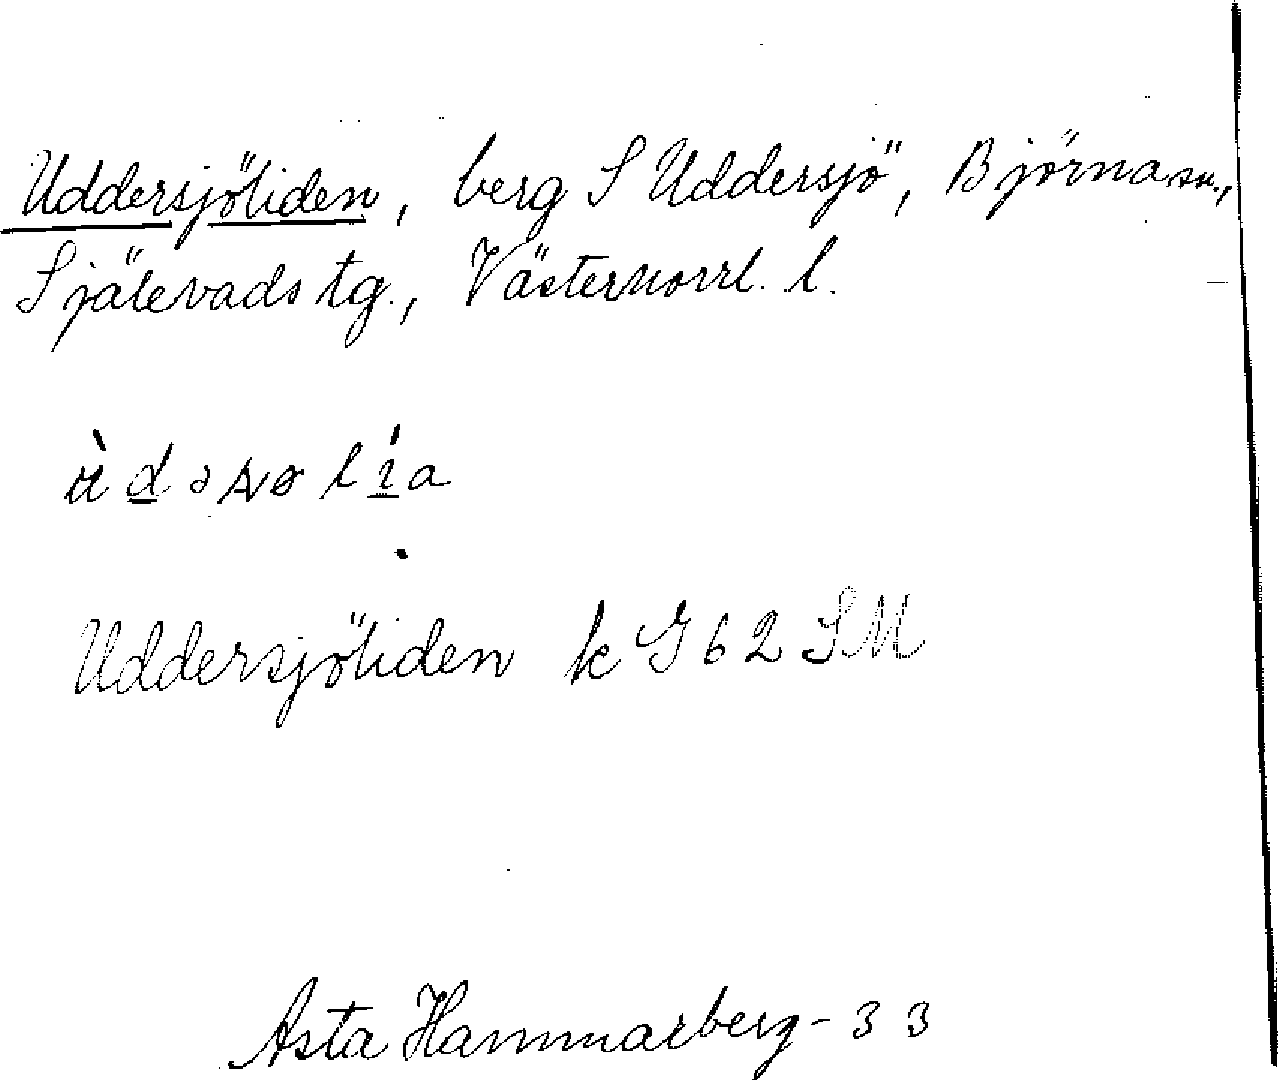 Uddersjöliden, berg S Uddersjö, Björna sn.,
Själevads tg., Västernorrl. l.
Uddersjöliden k G 62 SM
Asta Hammarberg - 33